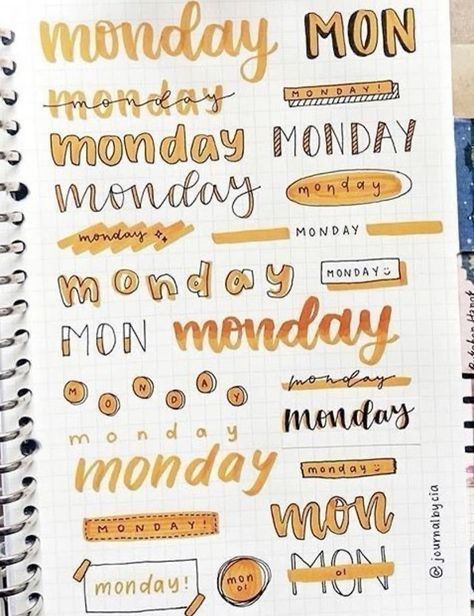 monday MON
monday MONDAY!
monday MONDAY
monday monday
monday MONDAY
monday MONDAY
MON monday
MONDAY monday
monday monday
monday monday
MONDAY! mon
monday! mon 01 MON 01
@journalbycia